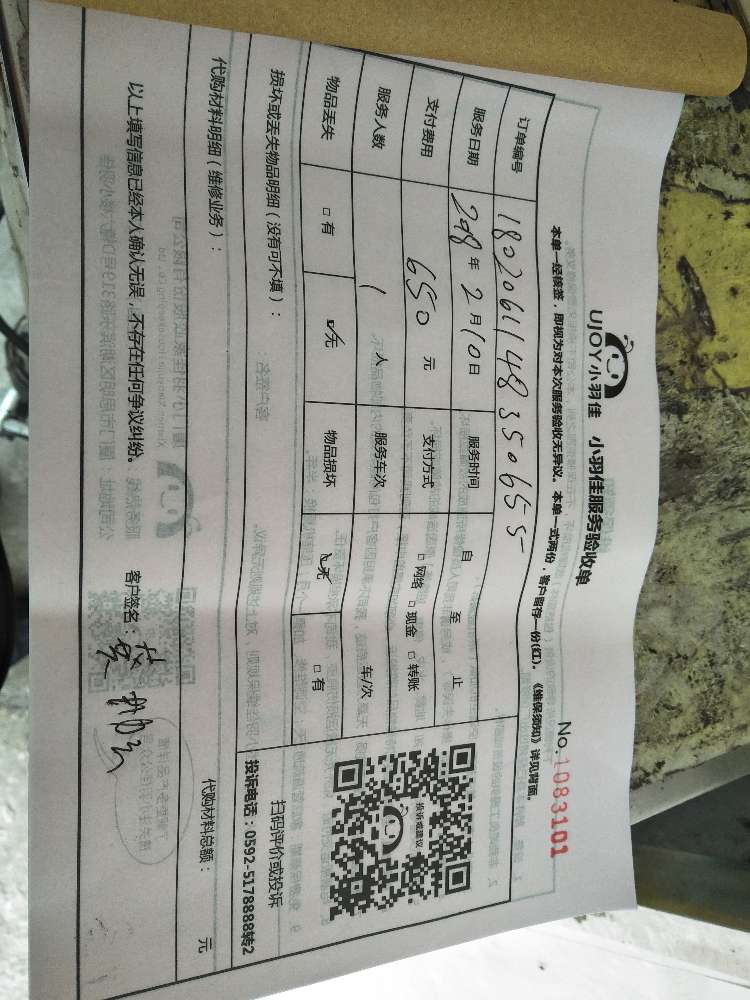 UJOY小羽佳 小羽佳服务验收单
No.1083101
本单一经核签,即视为对本次服务验收无异议。本单一式两份,客户留存一份(红)。《维保须知》详见背面。
订单编号 1802061148350655
服务日期 2018年2月10日 服务时间 自 至 止
支付费用 650元 支付方式 □网络 □现金 □转账
服务人数 1 人 服务车次 车/次
物品丢失 □有 ☑无 物品损坏 ☑无 □有
损坏或丢失物品明细(没有可不填):
投诉或建议
扫码评价或投诉
投诉电话:0592-5178888转2
代购材料明细(维修业务): 代购材料总额: 元
以上填写信息已经本人确认无误,不存在任何争议纠纷。 客户签名: